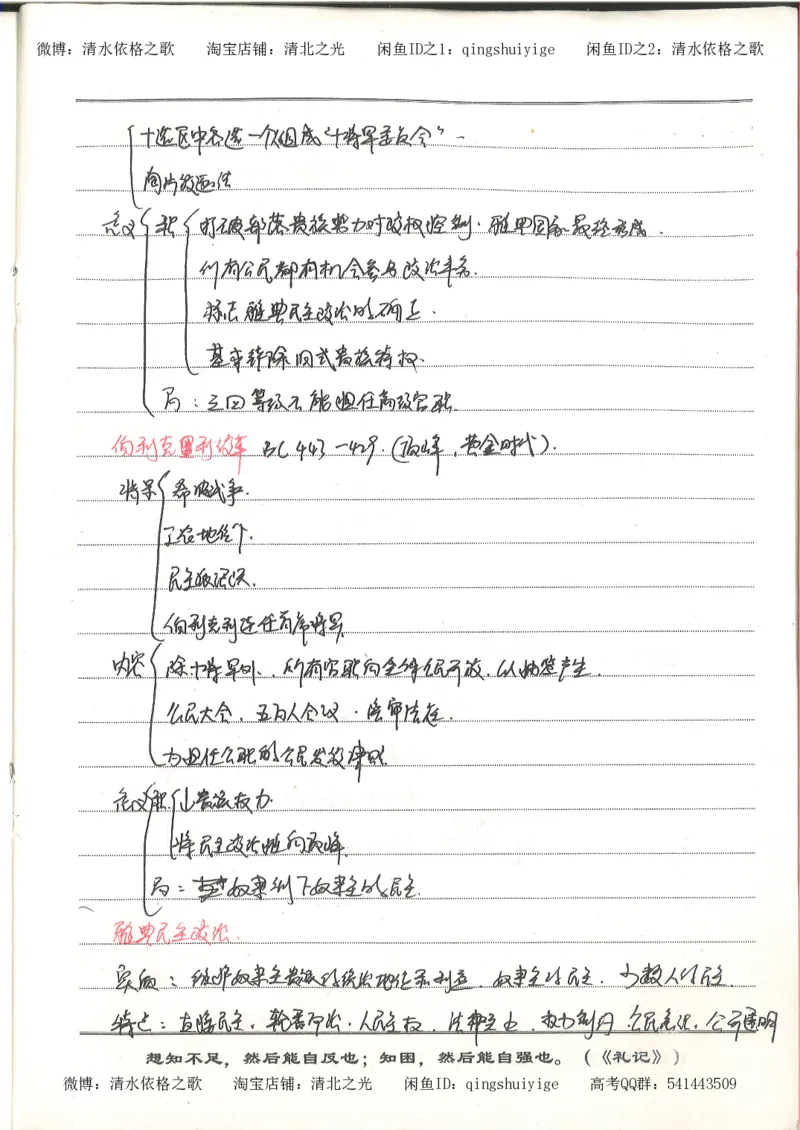 微博：清水依格之歌 淘宝店铺：清北之光 闲鱼ID之1：qingshuiyige 闲鱼ID之2：清水依格之歌
十选区中各选一个组成“十将军委员会”
陶片放逐法
意义 积 打破部落贵族势力对政权控制．雅典国家最终形成．
所有公民都有机会参与政治事务．
标志雅典民主政治的确立．
基本铲除旧式贵族特权．
局：三四等级不能担任高级官职．
伯利克里利改革 BC 443－429．(顶峰，黄金时代)．
背景 希波战争．
工农地位↑．
民主派
伯利克利连任首席将军
内容 除十将军外，所有官职向全体公民开放，以抽签产生．
公民大会．五百人会议．陪审法庭．
为担任公职的公民发放津贴
意义 积 贵族权力．
将民主政治推向顶峰．
局：奴隶制下奴隶主的民主．
雅典民主政治．
实质：维护奴隶主贵族的统治地位和利益．奴隶主的民主．少数人的民主．
特点：直接民主．轮番而治．人民主权．法律至上．权力制约．公民意识．公开透明
想知不足，然后能自反也；知困，然后能自强也。（《礼记》）
微博：清水依格之歌 淘宝店铺：清北之光 闲鱼ID：qingshuiyige 高考QQ群：541443509